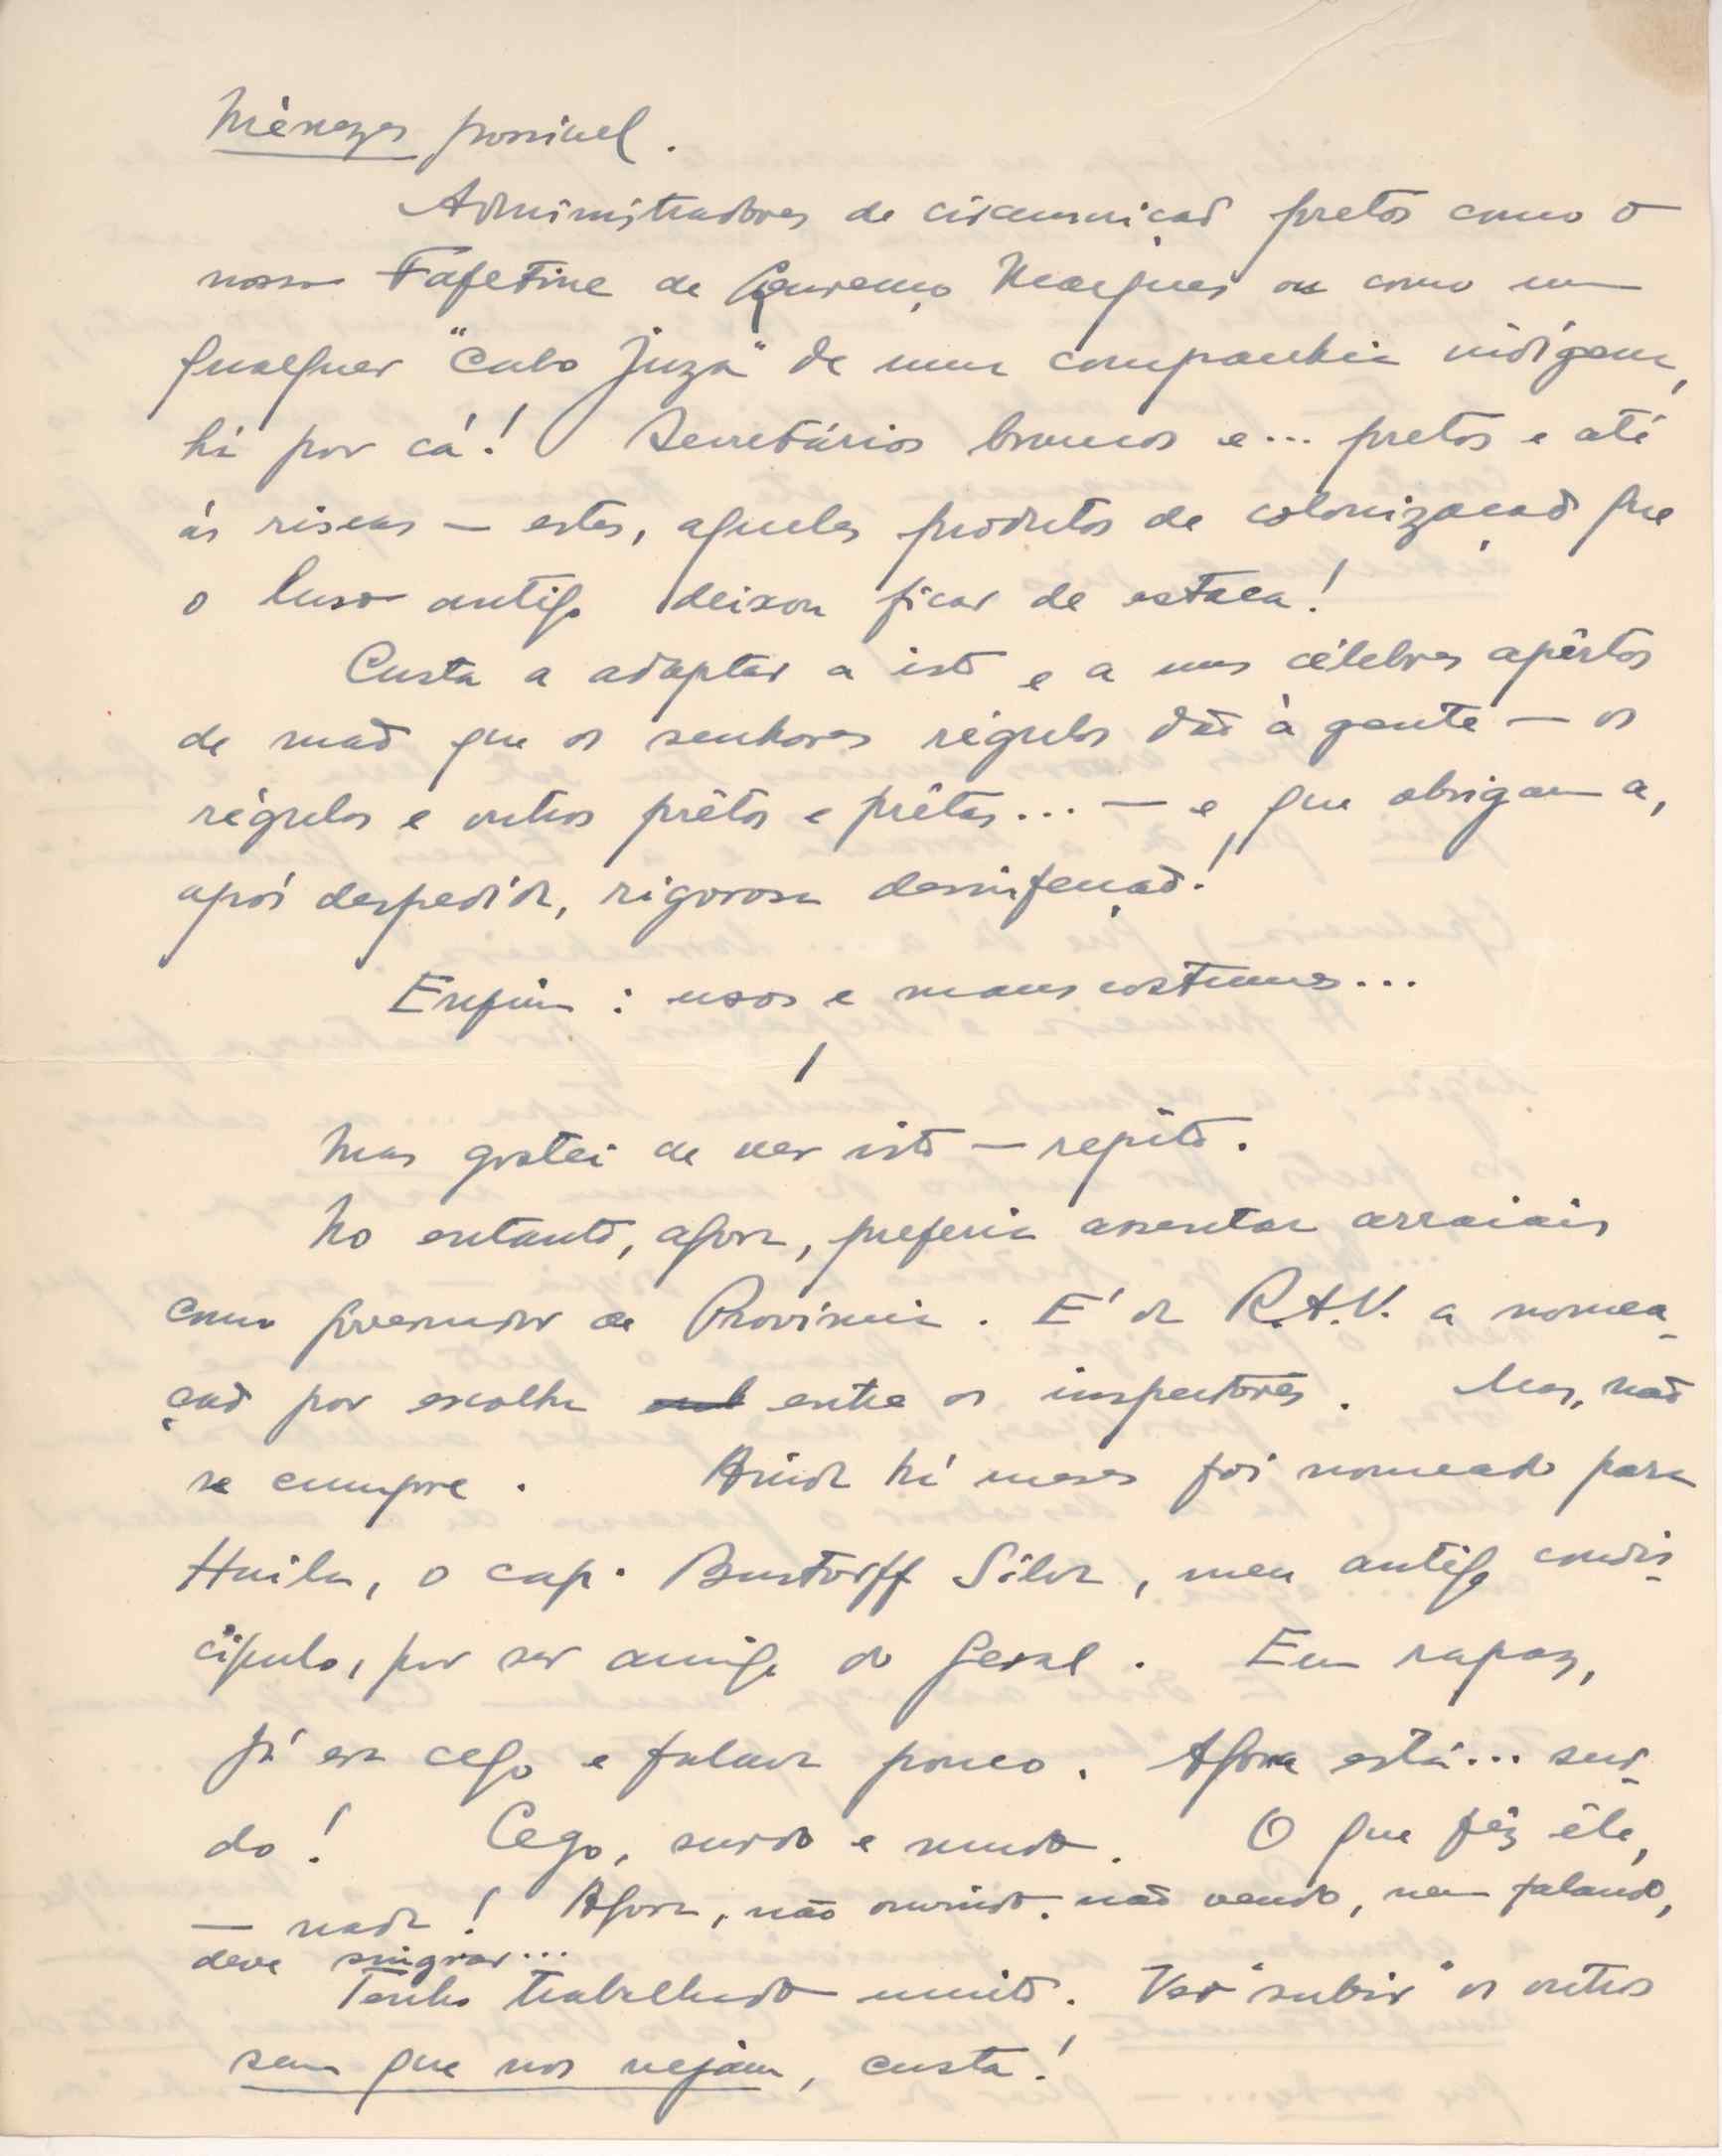 Ménages possivel.
Administradores de circunscrição pretos como o
nosso Fafetine de Lourenço Marques ou como um
qualquer "Cabo Juza" de uma companhia indígena,
há por cá! Secretários brancos e... pretos e até
ás riscas — estes, aqueles produtos de colonização que
o luso antigo deixou ficar de estaca!
Custa a adaptar a isto e a uns célebres apêrtos
de mão que os senhores régulos dão à gente — os
régulos e outros prêtos e prêtas... — e que obrigam a,
após despedida, rigorosa desinfecção!
Enfim : usos e maus costumes...
/
Mas gostei de ver isto — repito.
No entanto, agora, preferia assentar arraiais
como governador de Provincia. E' da R.A.U. a nomea-
ção por escolha entre os inspectores. Mas, não
se cumpre. Ainda há meses foi nomeado para
Huila, o cap. Bustorff Silva, meu antigo condis-
cípulo, por ser amigo do Geral. Em rapaz,
já era cego e falava pouco. Agora está... sur-
do! Cego, surdo e mudo. O que fêz êle,
— nada! Agora, não ouvindo, não vendo, nem falando,
deve singrar...
Tenho trabalhado muito. Ver "subir" os outros
sem que nos vejam, custa!